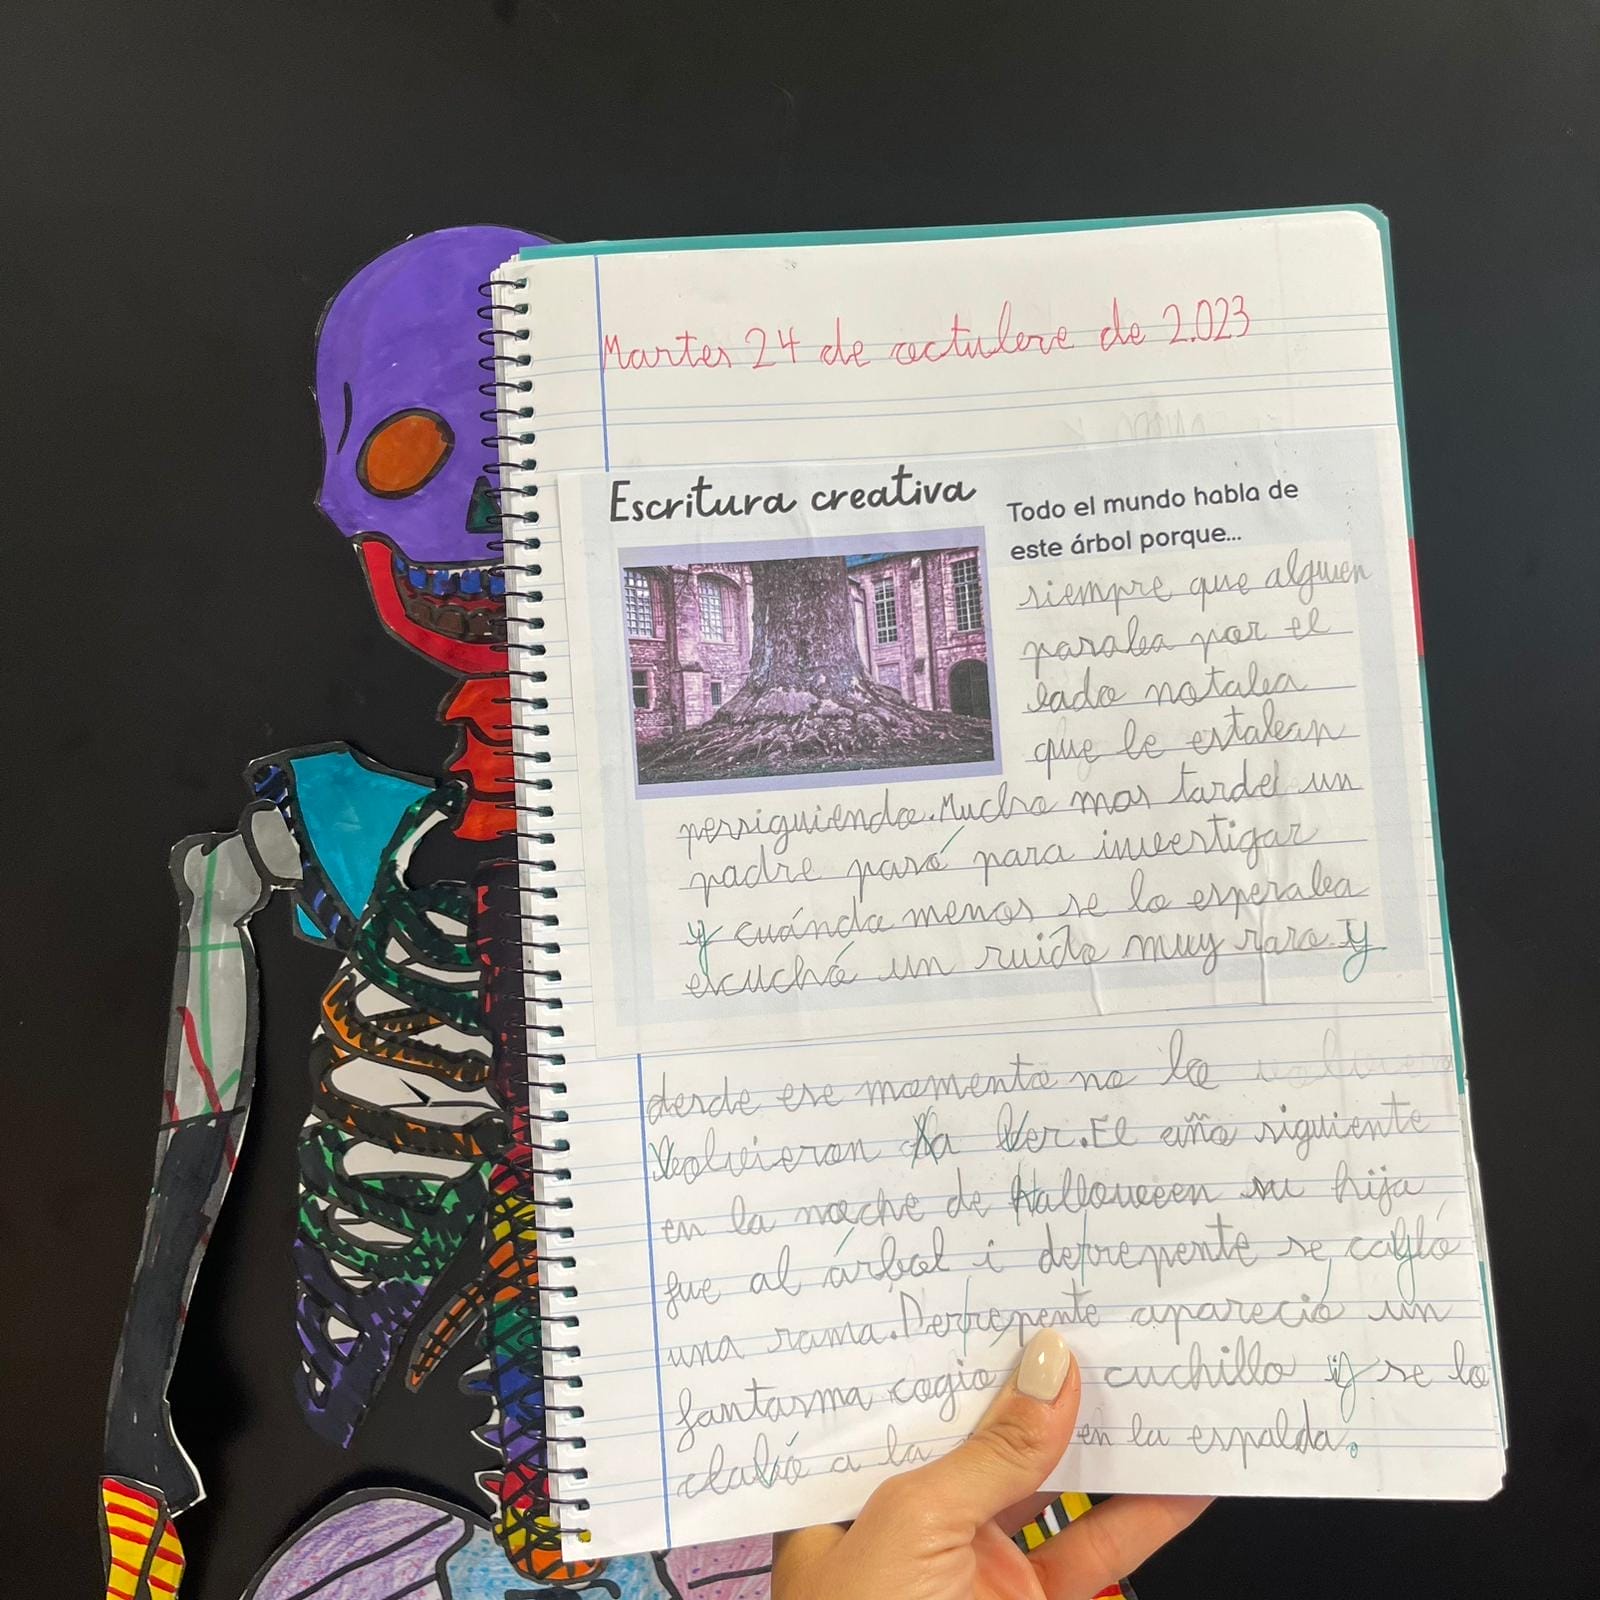 Martes 24 de octubre de 2.023
Escritura creativa
Todo el mundo habla de
este árbol porque...
siempre que alguien
pasaba por el
lado notaba
que le estaban
persiguiendo. Mucho mas tarde un
padre pasó para investigar
y cuándo menos se lo esperaba
escuchó un ruido muy raro. y
desde ese momento no lo
volvieron a ver. El año siguiente
en la noche de Halloween su hija
fue al árbol i derrepente se cayó
una rama. Derrepente apareció un
fantasma cogio cuchillo y se lo
clavó a la en la espalda.